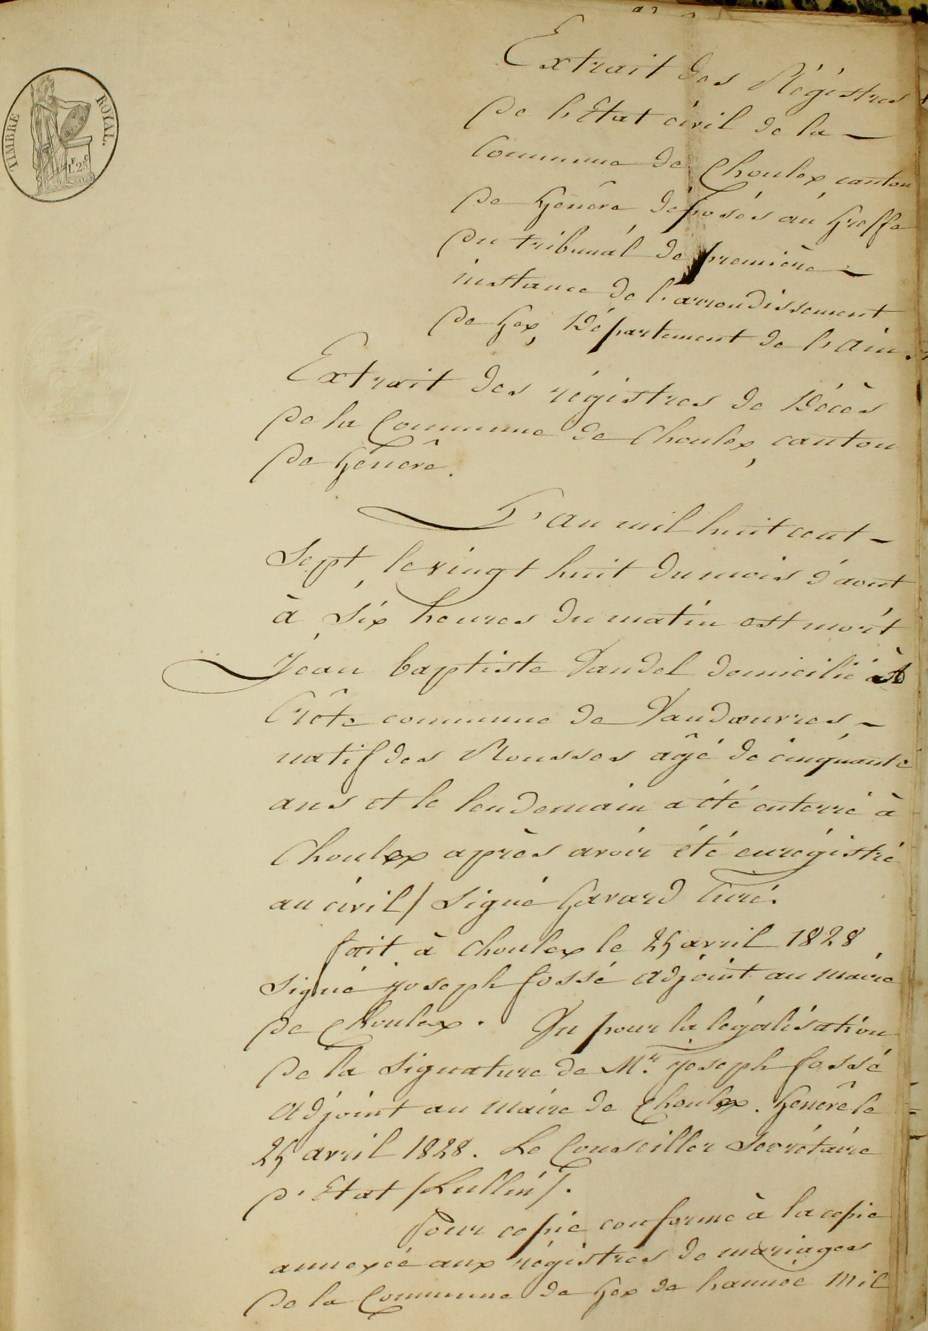 TIMBRE ROYAL
Extrait des Régistres
de l'Etat civil de la
Commune de Choulex canton
de Genève déposés au Greffe
du tribunal de première
instance de l'arrondissement
de Gex, Département de l'ain.
Extrait des régistres de Décès
de la Commune de Choulex, canton
de Genève.
L'an mil huit cent
Sept, le vingt huit du mois d'aout
à six heures du matin est mort
Jean baptiste Vandel domicilié à
Crète commune de Vandœuvres
natif des Rousses âgé de cinquante
ans et le lendemain a été enterré à
Choulex après avoir été enrégistré
au civil / signé Gavard Curé.
fait à Choulex le 25 avril 1828
signé joseph fossé adjoint au maire
de Choulex. Vu pour la légalisation
de la signature de Mr. joseph fossé
adjoint au maire de Choulex. Genève le
25 avril 1828. Le Conseiller Secrétaire
d'Etat / Lullin /.
Pour copie conforme à la copie
annexée aux régistres de mariages
de la Commune de Gex de l'année mil